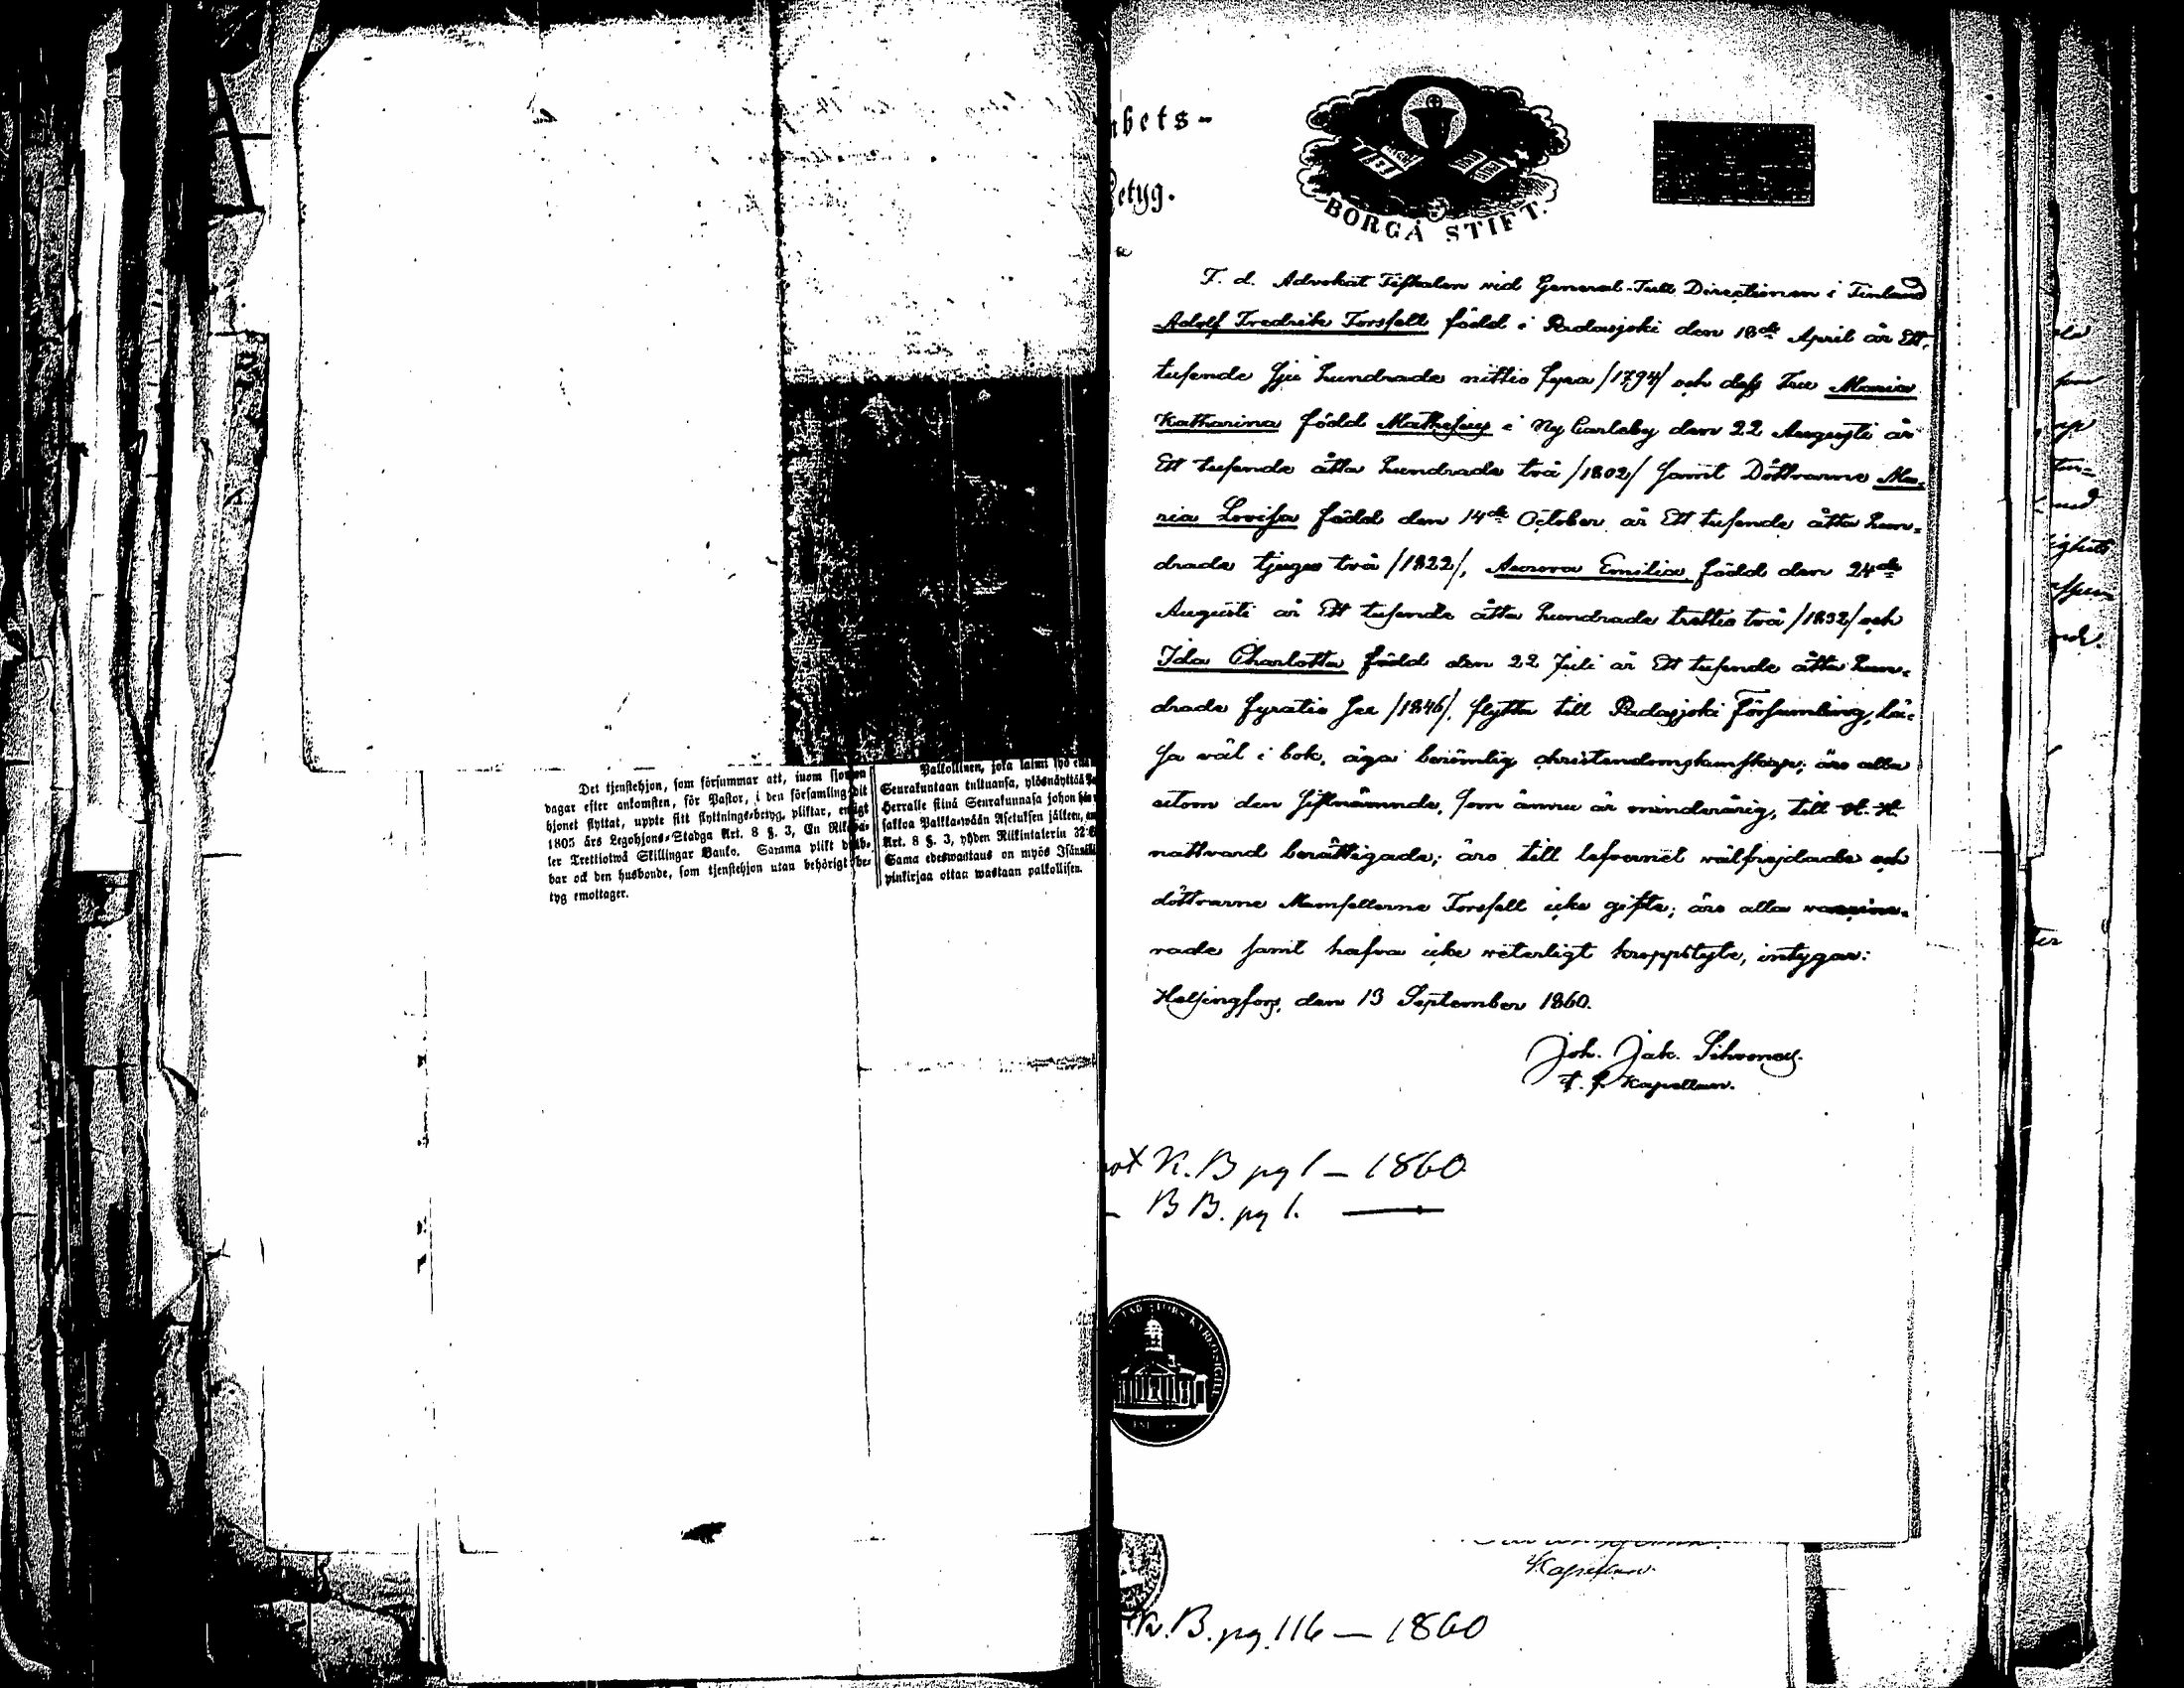 Det tjenstehjon, som försummar att, inom fjorton
dagar efter ankomsten, för Pastor, i den församling dit
hjonet flyttat, uppte sitt flyttnings-betyg, pliktar, enligt
1805 års Legohjons-Stadga Art. 8 §. 3, En Riksda-
ler Trettiotwå Skillingar Banko. Samma plikt
bar ock den husbonde, som tjenstehjon utan behörigt be-
tyg emottager.
Palkollinen, joka
Seurakuntaan tultuansa, ylösnäyttää
Herralle siinä Seurakunnasa johon
sakkoa Palkka-wään Asetuksen jälkeen,
Art. 8 §. 3, yhden Riikintalerin 32
Sama edeswastaus on myös
pinkirjaa ottaa wastaan palkollisen.
bets-
Betyg.
BORGÅ STIFT.
F. d. Advokat Fiskalen vid General-Tull Directionen i Finland
Adolf Fredrik Forsfell född i Padasjoki den 18de April år Ett
tusende sju hundrade nittio fyra /1794/ och dess Fru Maria
Katharina född Mathesius i Ny Carleby den 22 Augusti år
Ett tusende åtta hundrade två /1802/ samt Döttrarne Ma-
ria Lovisa född den 14de October år Ett tusende åtta hun-
drade tjugu två /1822/, Aurora Emilia född den 24de
Augusti år Ett tusende åtta hundrade trettio två /1832/ och
Ida Charlotta född den 22 Juli år Ett tusende åtta hun-
drade fyratio sex /1846/, flytta till Padasjoki Församling, lä-
sa väl i bok, äga berömlig christendomskunskap; äro alla
utom den sistnämnde, som ännu är minderårig, till H. H.
nattvard berättigade; äro till lefvernet välfrejdade och
döttrarne Mamsellerne Forsfell icke gifte; äro alla vaccine-
rade samt hafva icke veterligt kroppslyte, intygar:
Helsingfors, den 13 September 1860.
Joh. Jak.
t. f. Kapellan.
K. B pg 1 — 1860
B B. pg 1. —
Kapellan.
K. B. pg. 116 — 1860